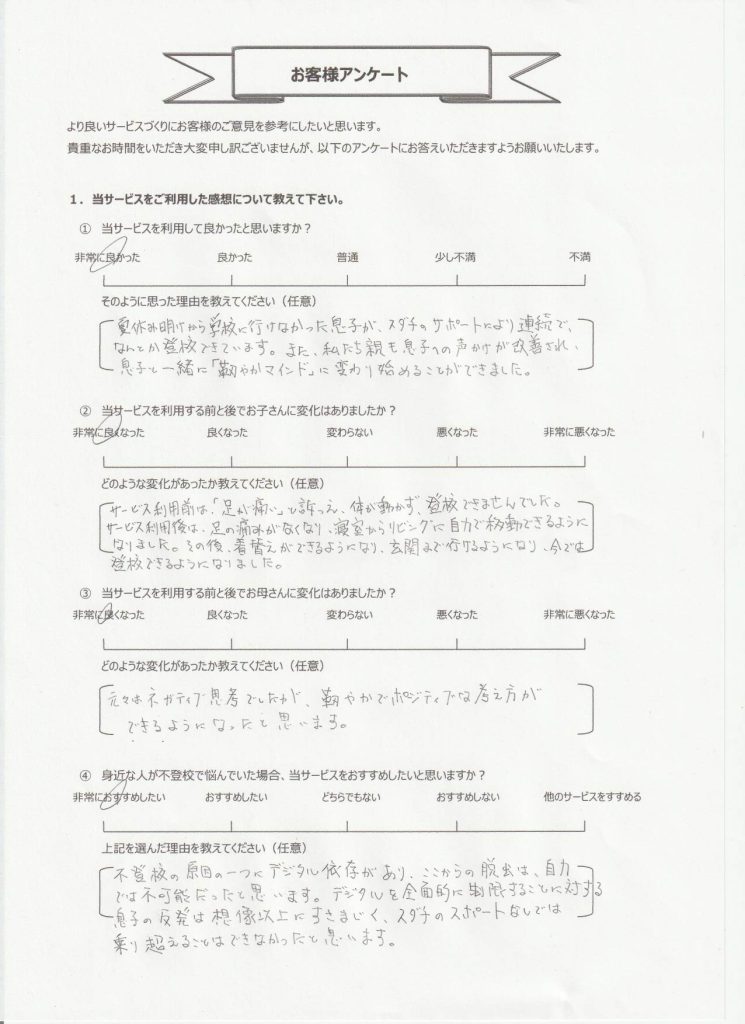 お客様アンケート
より良いサービスづくりにお客様のご意見を参考にしたいと思います。
貴重なお時間をいただき大変申し訳ございませんが、以下のアンケートにお答えいただきますようお願いいたします。
1. 当サービスをご利用した感想について教えて下さい。
① 当サービスを利用して良かったと思いますか？
非常に良かった 良かった 普通 少し不満 不満
そのように思った理由を教えてください（任意）
夏休み明けから学校に行けなかった息子が、スダチのサポートにより連続で、
なんとか登校できています。また、私たち親も息子への声かけが改善され、
息子と一緒に「靭やかマインド」に変わり始めることができました。
② 当サービスを利用する前と後でお子さんに変化はありましたか？
非常に良くなった 良くなった 変わらない 悪くなった 非常に悪くなった
どのような変化があったか教えてください（任意）
サービス利用前は、「足が痛い」と訴え、体が動かず、登校できませんでした。
サービス利用後は、足の痛みがなくなり、寝室からリビングに自力で移動できるように
なりました。その後、着替えができるようになり、玄関まで行けるようになり、今では
登校できるようになりました。
③ 当サービスを利用する前と後でお母さんに変化はありましたか？
非常に良くなった 良くなった 変わらない 悪くなった 非常に悪くなった
どのような変化があったか教えてください（任意）
元々はネガティブ思考でしたが、靭やかでポジティブな考え方が
できるようになったと思います。
④ 身近な人が不登校で悩んでいた場合、当サービスをおすすめしたいと思いますか？
非常におすすめしたい おすすめしたい どちらでもない おすすめしない 他のサービスをすすめる
上記を選んだ理由を教えてください（任意）
不登校の原因の一つにデジタル依存があり、ここからの脱出は、自力
では不可能だったと思います。デジタルを全面的に制限することに対する
息子の反発は想像以上にすさまじく、スダチのスポートなしでは
乗り超えることはできなかったと思います。